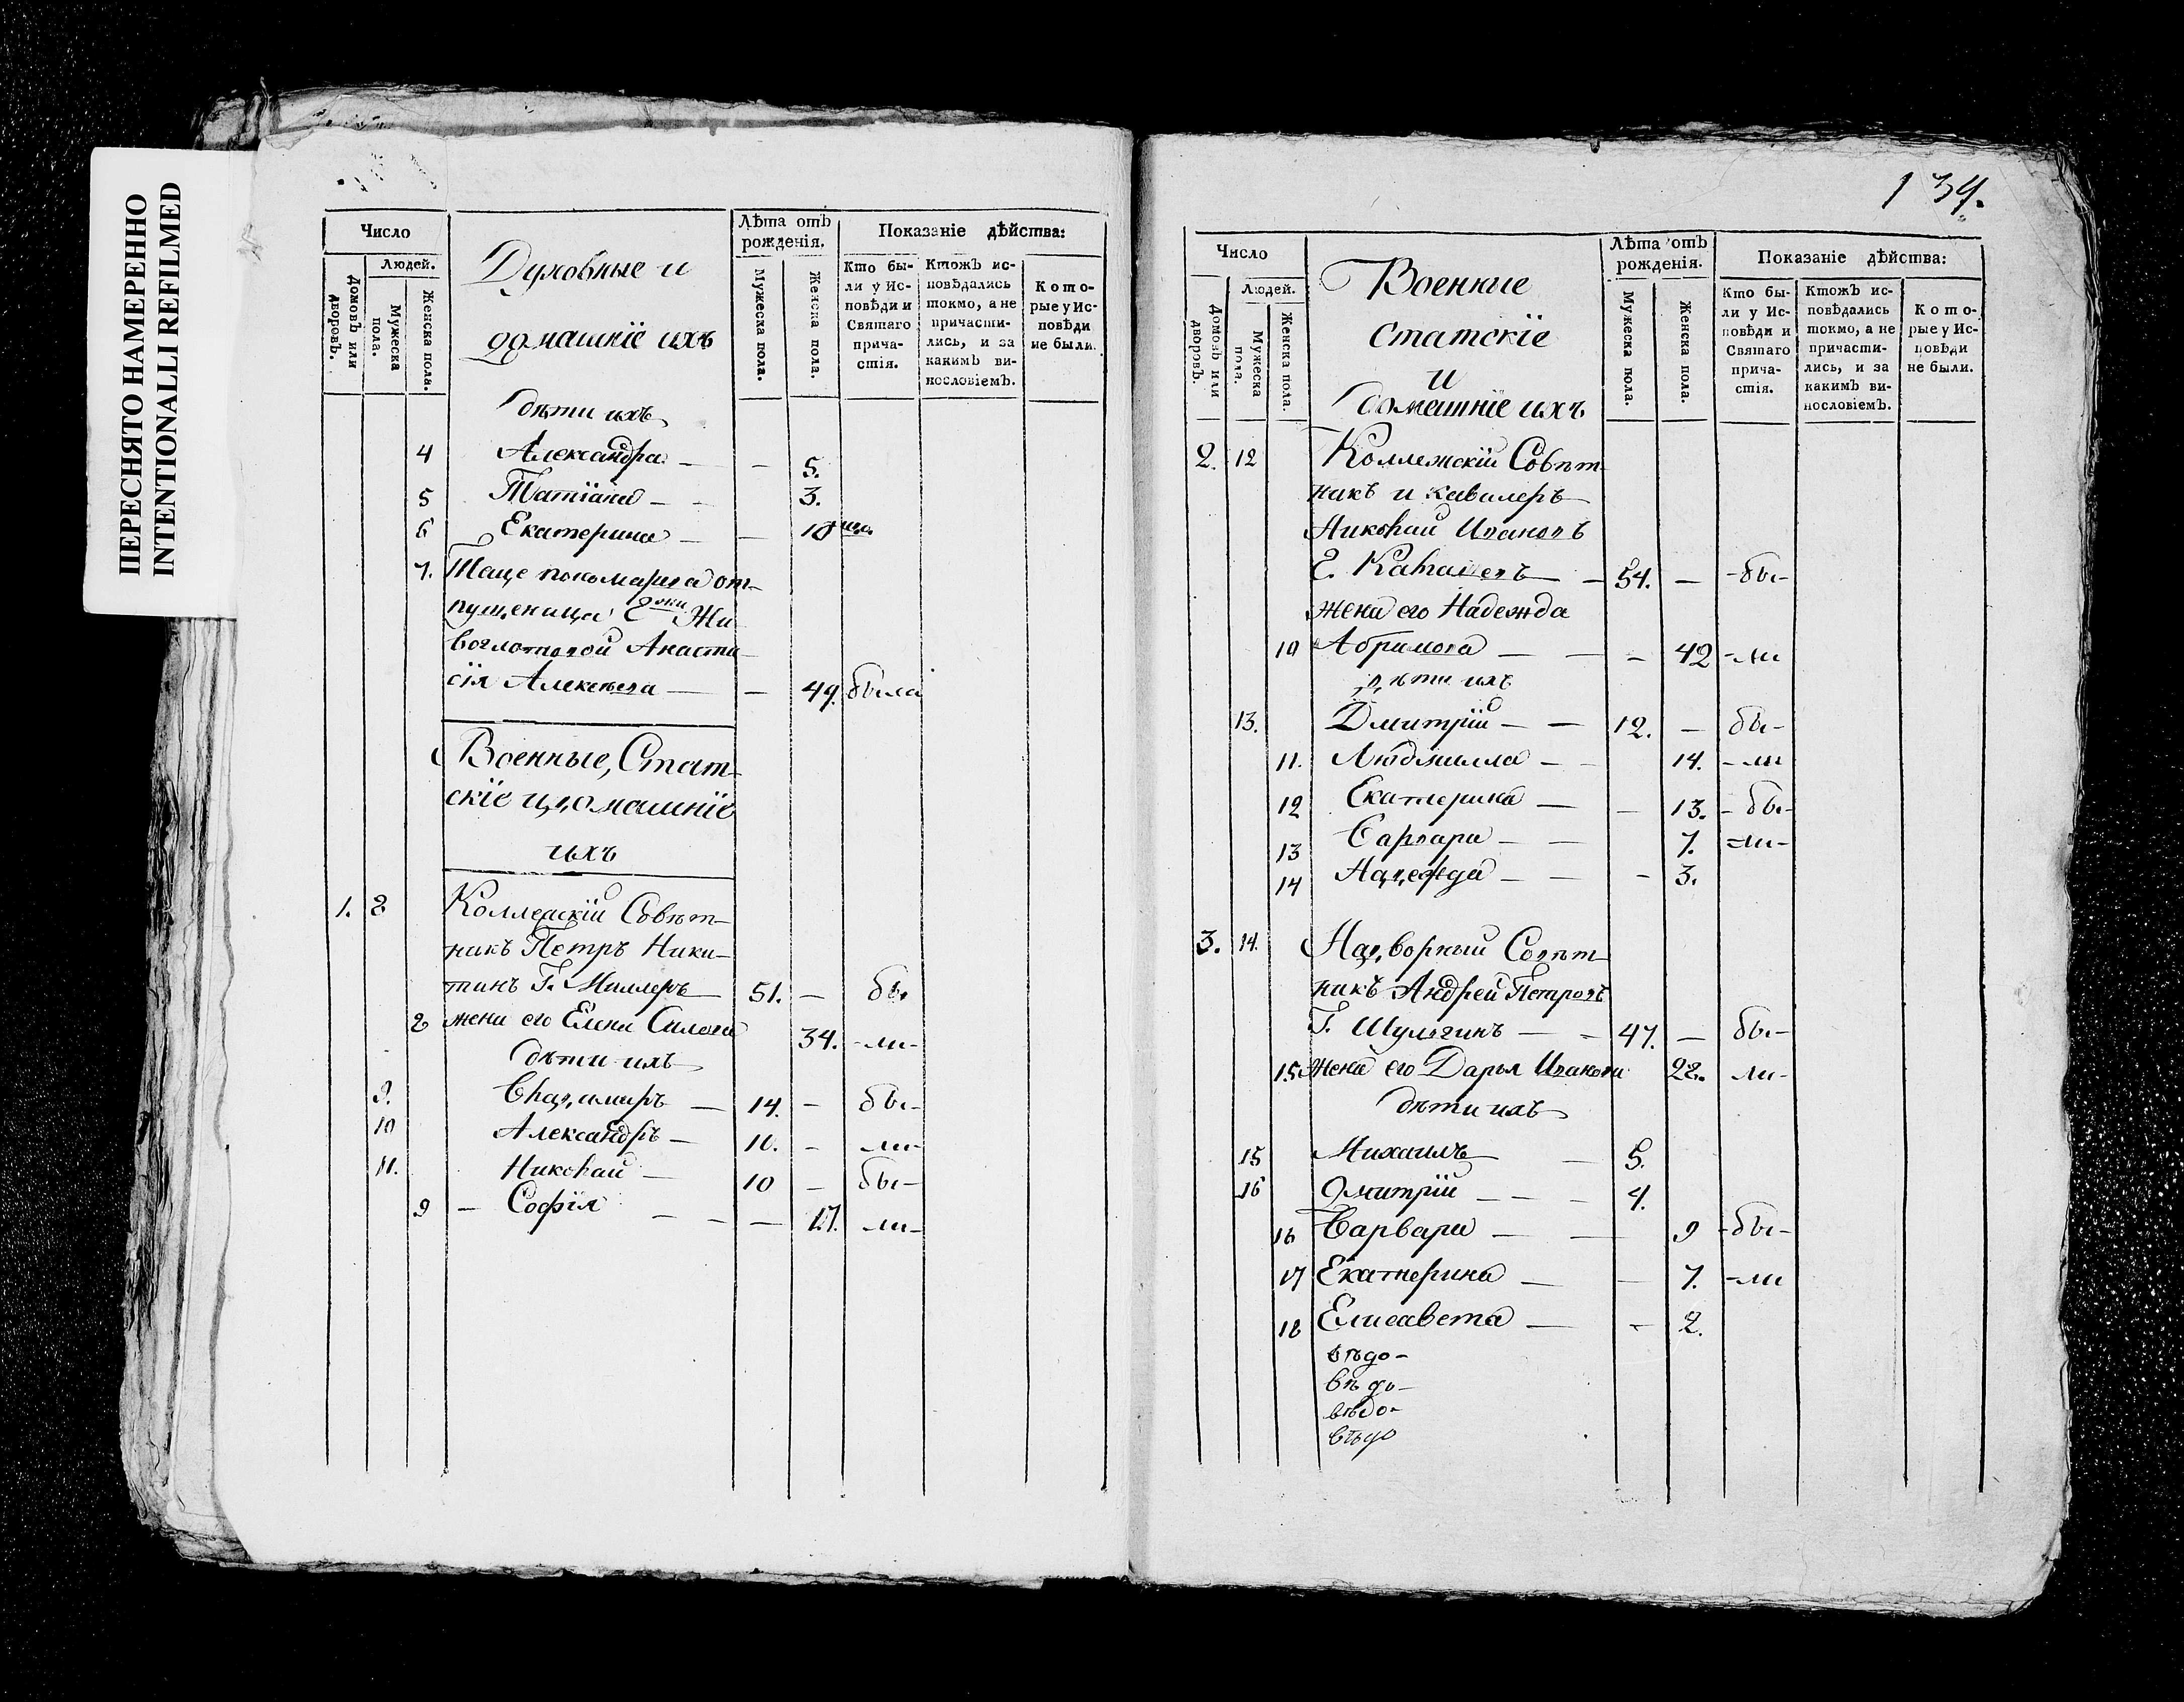 ПЕРЕСНЯТО НАМЕРЕННО
INTENTIONALLI REFILMED
Число
Домовъ или дворовъ.
Людей.
Мужеска пола.
Женска пола.
Духовные и
домашніе ихъ
Лѣта отъ рожденія.
Мужеска пола.
Женска пола.
Показаніе дѣйства:
Кто были у Исповѣди и Святаго причастія.
Ктожъ исповѣдались токмо, а не причастились, и за какимъ винословіемъ.
Которые у Исповѣди не были.
дѣти ихъ
4 Александра — — 5.
5 Татіана — — 3.
6 Екатерина — — 10
7. Таще пономарша от-
пущеница Жи
воглотовой Анаста
сія Алексѣева — — 49. была
Военные, Стат
скіе и домашніе
ихъ
1. 8 Коллежскій Совѣт-
никъ Петръ Ники-
тинъ Г. Миллеръ 51. — бы
8 жена его Елена Силова 34. -ли-
дѣти ихъ
9. Владимиръ — 14. — бы-
10 Александръ — 10. - ли-
11. Николай — 10 — бы-
9 — Софія — — — 17. ли-
134.
Число
Домовъ или дворовъ.
Людей.
Мужеска пола.
Женска пола.
Военные
статскіе
и
домашніе ихъ
Лѣта отъ рожденія.
Мужеска пола.
Женска пола.
Показаніе дѣйства:
Кто были у Исповѣди и Святаго причастія.
Ктожъ исповѣдались токмо, а не причастились, и за какимъ винословіемъ.
Которые у Исповѣди не были.
2. 12 Коллежскій Совѣт
никъ и кавалеръ
Николай Ивановъ
Г. — 54. — -бы-
жена его Надежда
10 Абрамова — — — 42 -ли
дѣти ихъ
13. Дмитрій — — 12. — бы-
11. Людмилла — - 14. -ли
12 Екатерина — — 13. -бы-
13 Варвара — — 7. -ли-
14 Надежда — — - 3.
3. 14. Надворный Совѣт
никъ Андрей Петровъ
Г. Шульгинъ — - 47. — бы-
15 жена его Дарья Иванова 28. ли-
дѣти ихъ
15 Михаилъ — 5.
16 Дмитрій — — - 4.
16 Варвара — — 9 -бы-
17 Екатерина — — 7. -ли
18 Елисавета — - 2.
вѣдо-
вѣдо-
вѣдо-
вѣдо